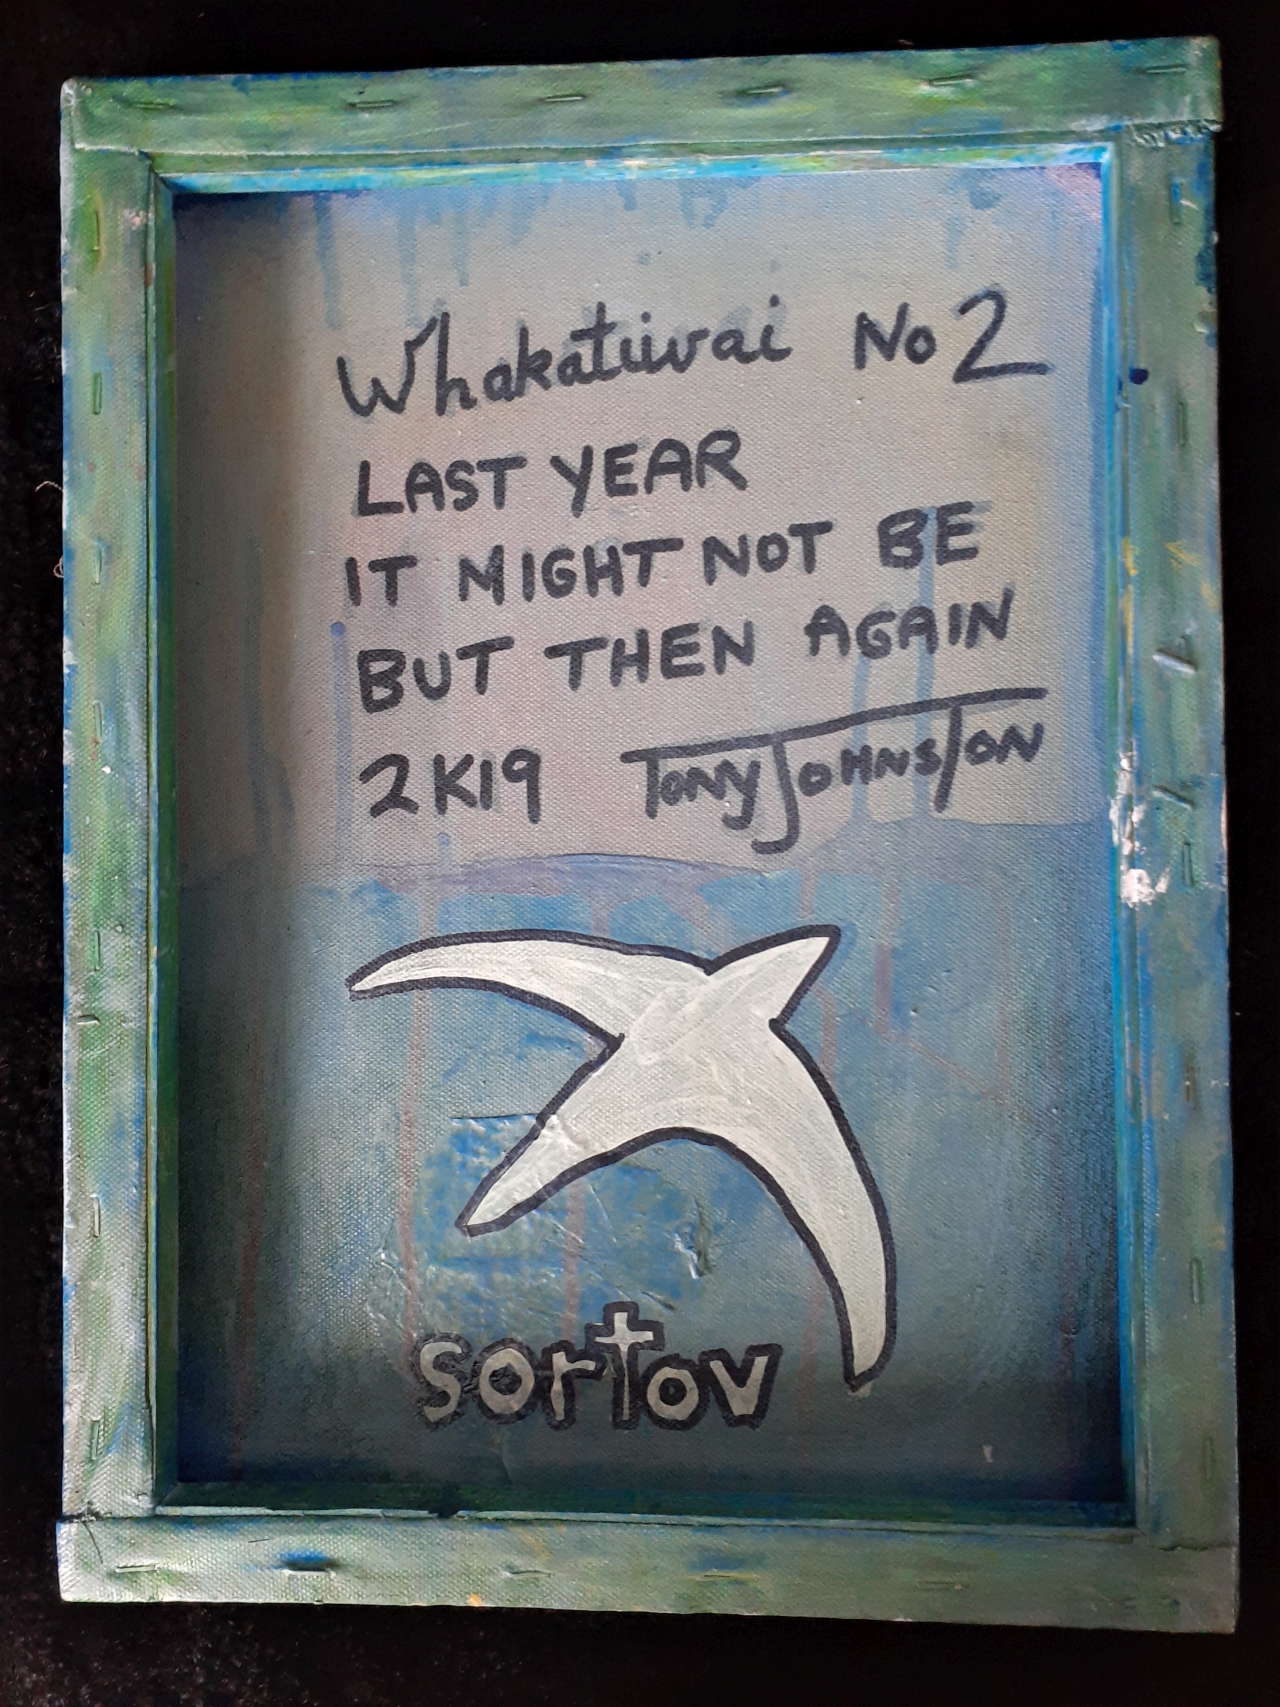 Whakatiwai No 2
LAST YEAR
IT MIGHT NOT BE
BUT THEN AGAIN
2K19 TONY JOHNSTON
sortov